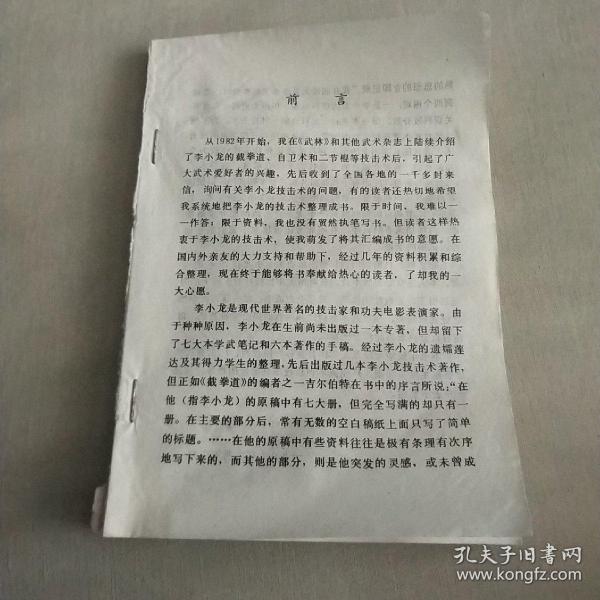 前 言
从1982年开始，我在《武林》和其他武术杂志上陆续介绍
了李小龙的截拳道、自卫术和二节棍等技击术后，引起了广
大武术爱好者的兴趣，先后收到了全国各地的一千多封来
信，询问有关李小龙技击术的问题，有的读者还热切地希望
我系统地把李小龙的技击术整理成书。限于时间、我难以一
一作答；限于资料、我也没有贸然执笔写书。但读者这样热
衷于李小龙的技击术，使我萌发了将其汇编成书的意愿。在
国内外亲友的大力支持和帮助下，经过几年的资料积累和综
合整理，现在终于能够将书奉献给热心的读者，了却我的一
大心愿。
李小龙是现代世界著名的技击家和功夫电影表演家。由
于种种原因，李小龙在生前尚未出版过一本专著，但却留下
了七大本学武笔记和六本著作的手稿。经过李小龙的遗孀莲
达及其得力学生的整理，先后出版过几本李小龙技击术著作，
但正如《截拳道》的编者之一吉尔伯特在书中的序言所说：“在
他（指李小龙）的原稿中有七大册，但完全写满的却只有一
册。在主要的部分后，常有无数的空白稿纸上面只写了简单
的标题。……在他的原稿中有些资料往往是极有条理有次序
地写下来的，而其他的部分，则是他突发的灵感，或未曾成
孔夫子旧书网
www.kongfz.com